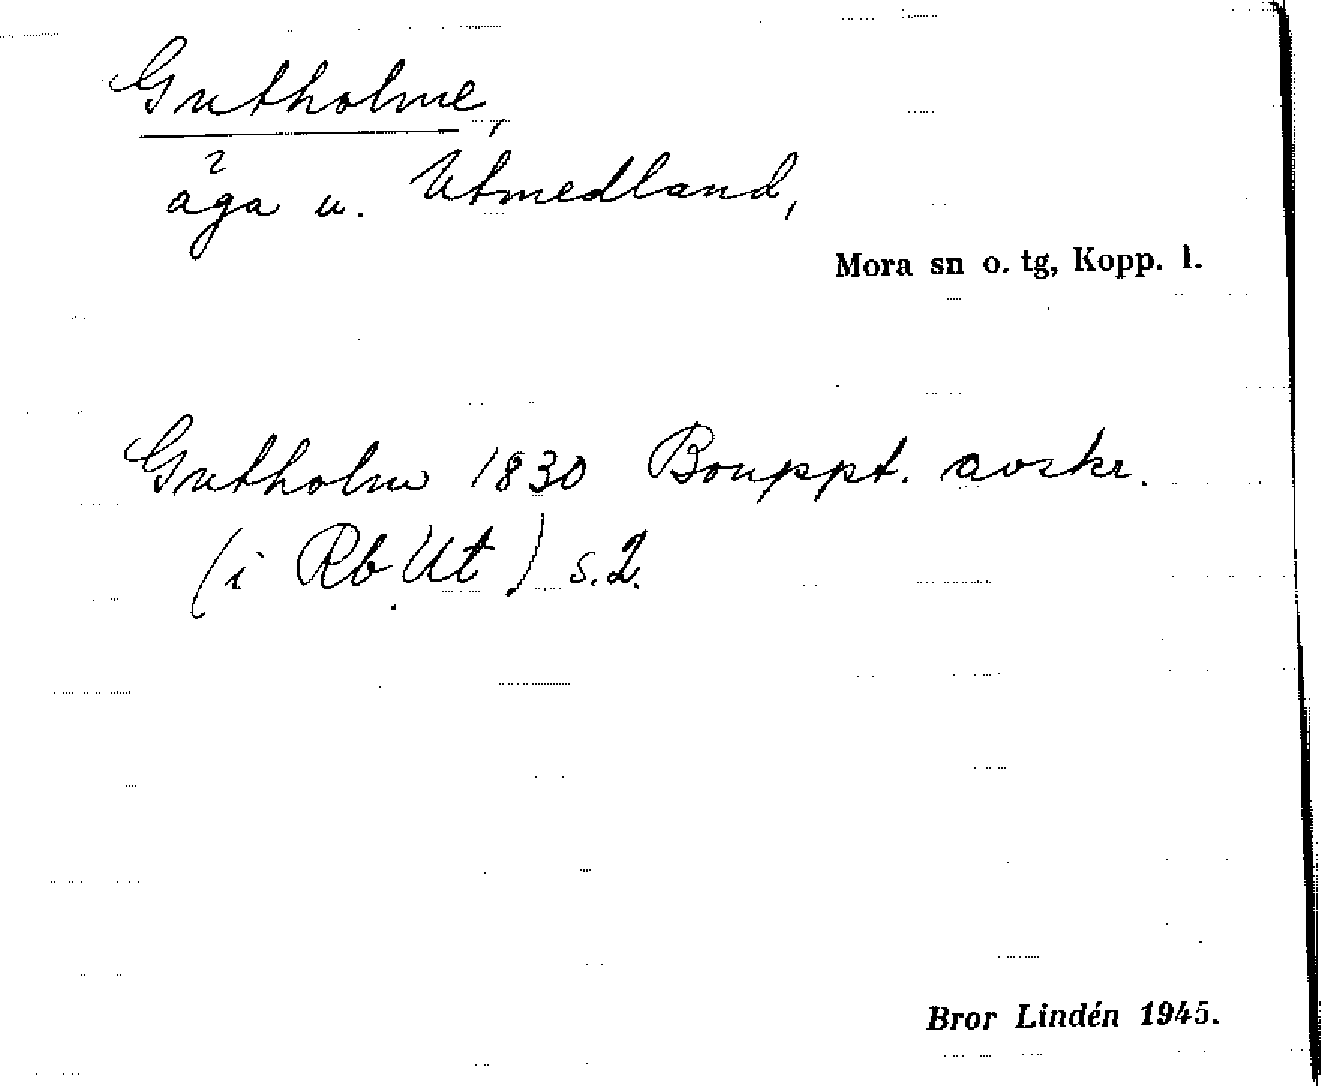 Gutholme,
äga u. Utmedland,
Mora sn o. tg, Kopp. l.
Gutholm 1830 Bouppt. avskr.
(i Rb Ut) s. 2.
Bror Lindén 1945.